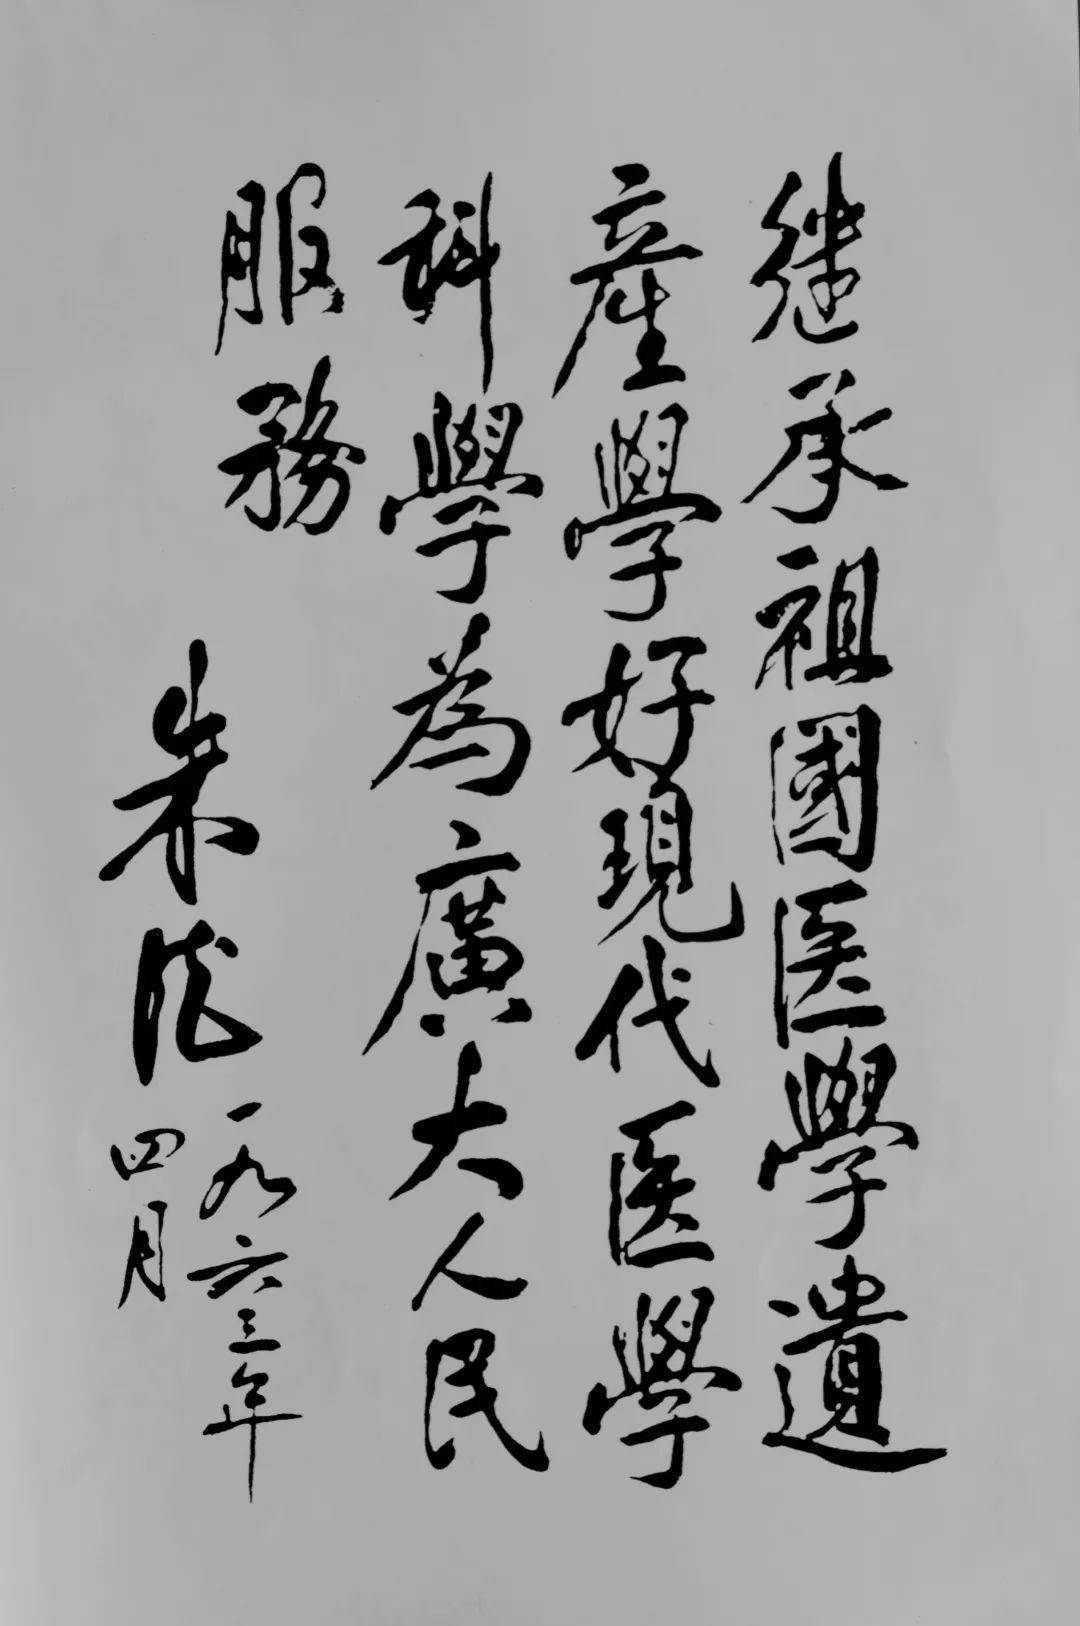 继承祖國医學遺
產學好現代医學
科學為廣大人民
服務
朱德
一九六三年
四月